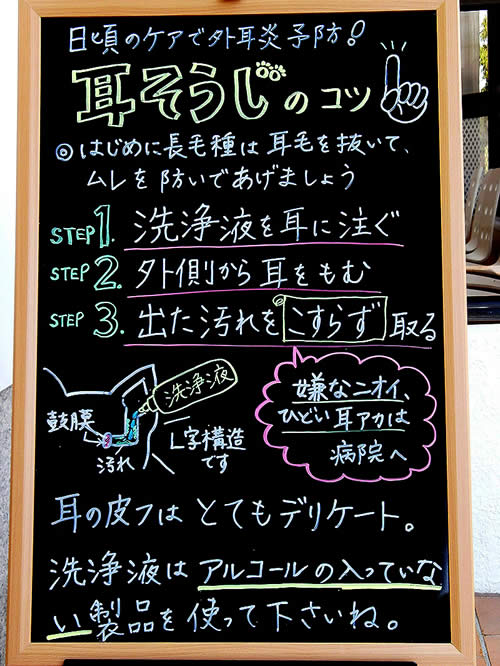 日頃のケアで外耳炎予防!
耳そうじのコツ
◎はじめに長毛種は耳毛を抜いて、
ムレを防いであげましょう
STEP 1. 洗浄液を耳に注ぐ
STEP 2. 外側から耳をもむ
STEP 3. 出た汚れをこすらず取る
洗浄液
鼓膜
汚れ
L字構造
です
嫌なニオイ、
ひどい耳アカは
病院へ
耳の皮フはとてもデリケート。
洗浄液はアルコールの入っていな
い製品を使って下さいね。